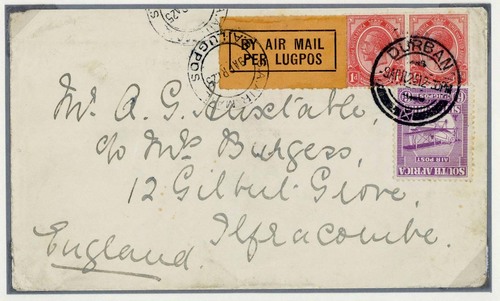 BY AIR MAIL
PER LUGPOS
DURBAN
LUGPOS
1d
SOUTH AFRICA
AIR POST
Mr. A. G. Huxtable,
c/o Mrs Burgess,
12 Gilbert Grove,
Ilfracombe.
England.